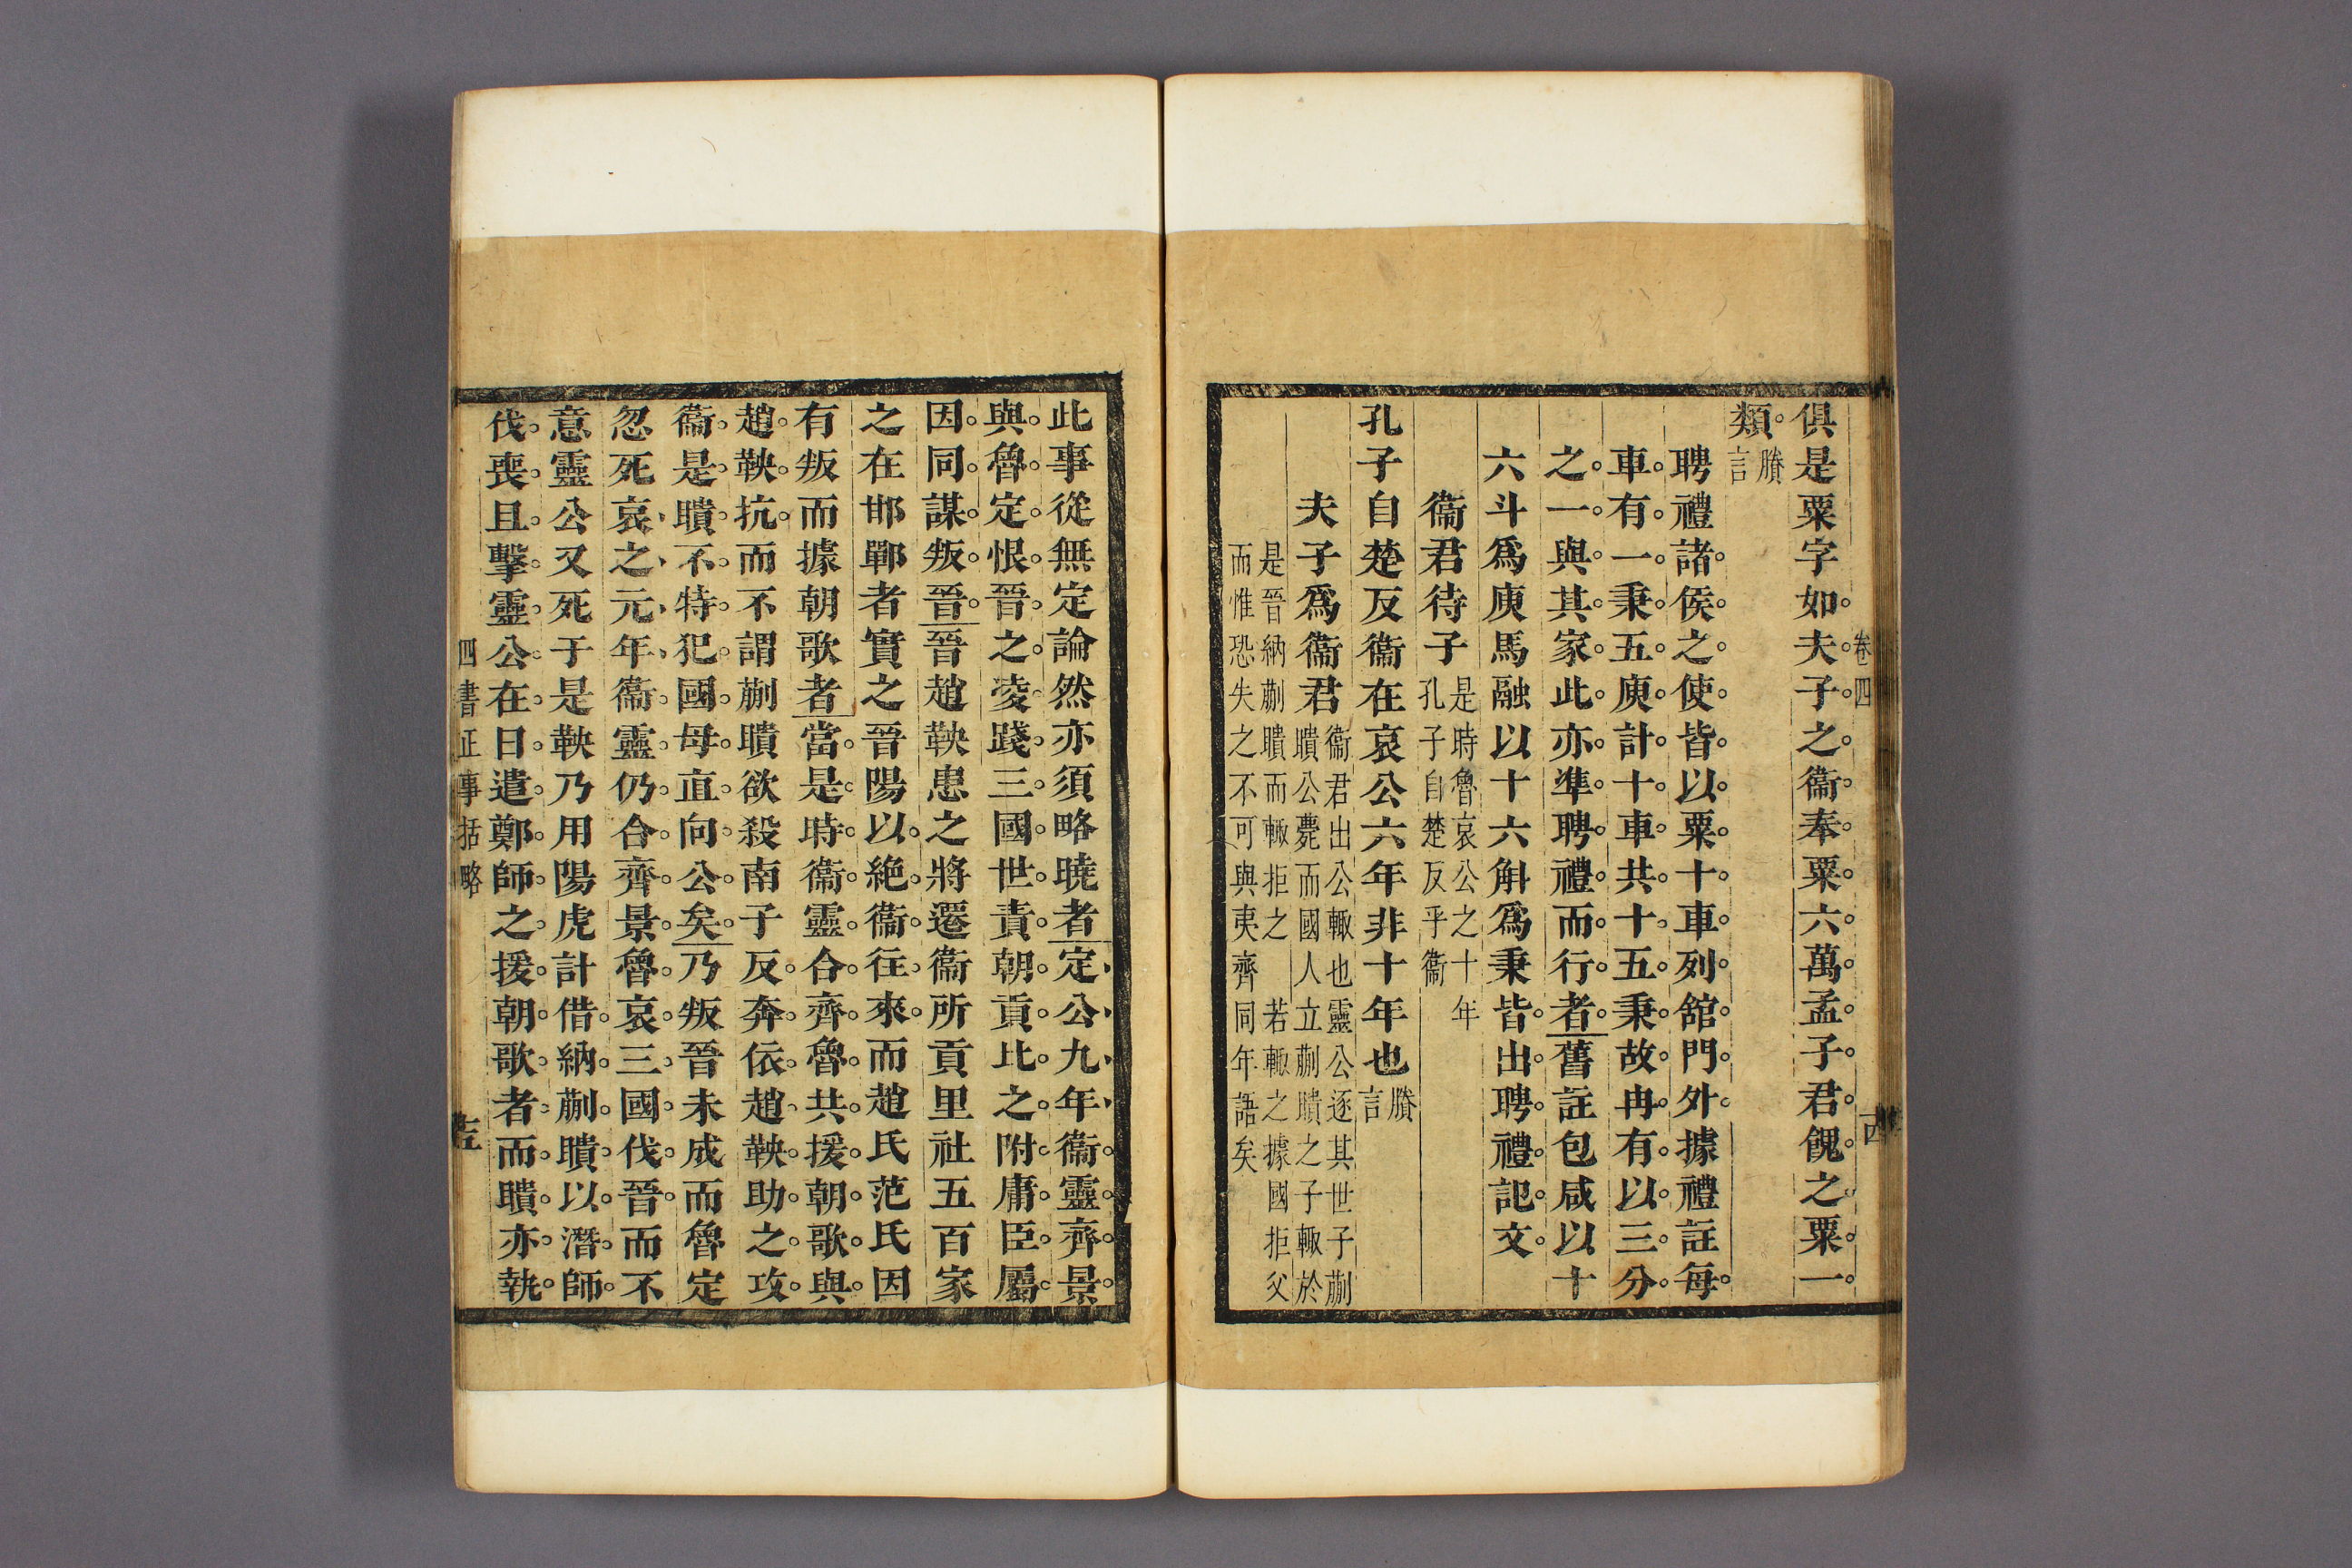 卷四
十四
俱是粟字如夫子之衞奉粟六萬孟子君餽之粟一
類賸言
聘禮諸侯之使皆以粟十車列館門外據禮註每
車有一秉五庾計十車共十五秉故冉有以三分
之一與其家此亦準聘禮而行者舊註包咸以十
六斗爲庾馬融以十六斛爲秉皆出聘禮記文
衞君待子是時魯哀公之十年
孔子自楚反乎衞
孔子自楚反衞在哀公六年非十年也賸言
夫子爲衞君衞君出公輒也靈公逐其世子蒯
聵公薨而國人立蒯聵之子輒於
是晉納蒯聵而輒拒之 若輒之據國拒父
而惟恐失之不可與夷齊同年語矣
此事從無定論然亦須略曉者定公九年衞靈齊景
與魯定恨晉之凌踐三國世責朝貢比之附庸臣屬
因同謀叛晉晉趙鞅患之將遷衞所貢里社五百家
之在邯鄲者實之晉陽以絶衞往來而趙氏范氏因
有叛而據朝歌者當是時衞靈合齊魯共援朝歌與
趙鞅抗而不謂蒯聵欲殺南子反奔依趙鞅助之攻
衞是聵不特犯國母直向公矣乃叛晉未成而魯定
忽死哀之元年衞靈仍合齊景魯哀三國伐晉而不
意靈公又死于是鞅乃用陽虎計借納蒯聵以潛師
伐喪且擊靈公在日遣鄭師之援朝歌者而聵亦執
四書正事括略